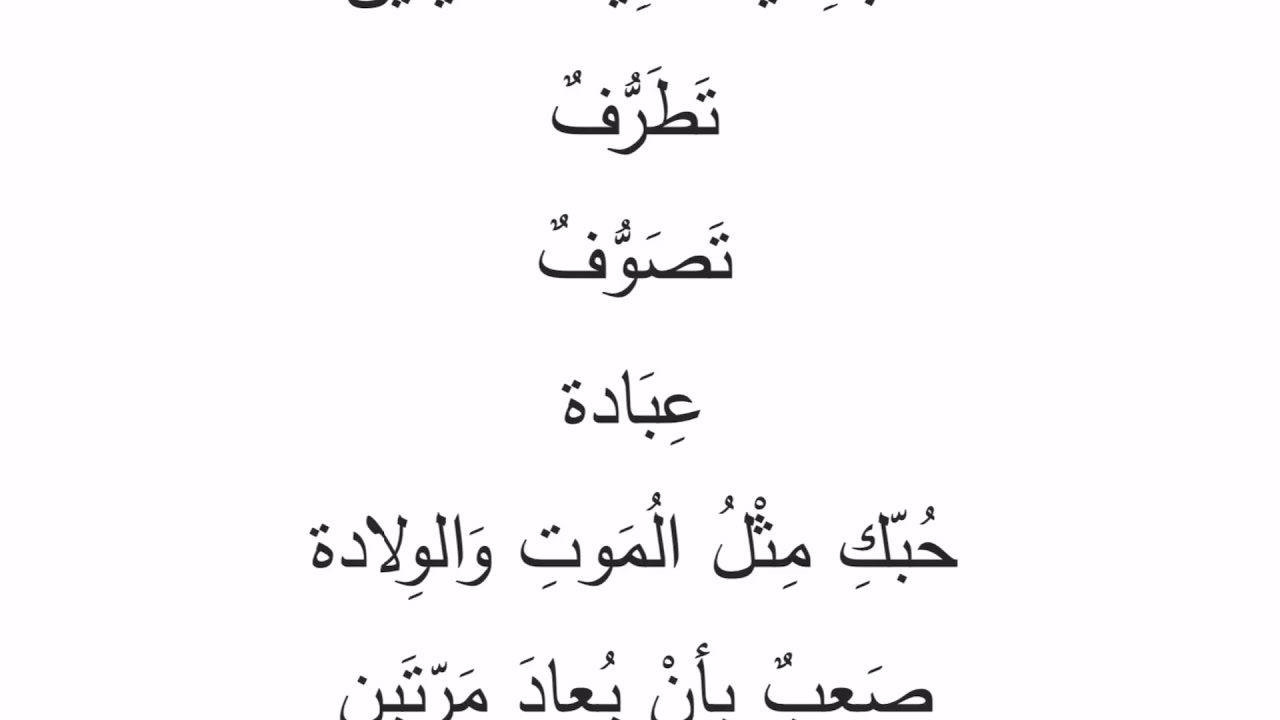 تَطَرُّفٌ
تَصَوُّفٌ
عِبَادة
حُبّكِ مِثْلُ الُمَوتِ وَالوِلادة
صَعبٌ بِأنْ يُعادَ مَرّتَين